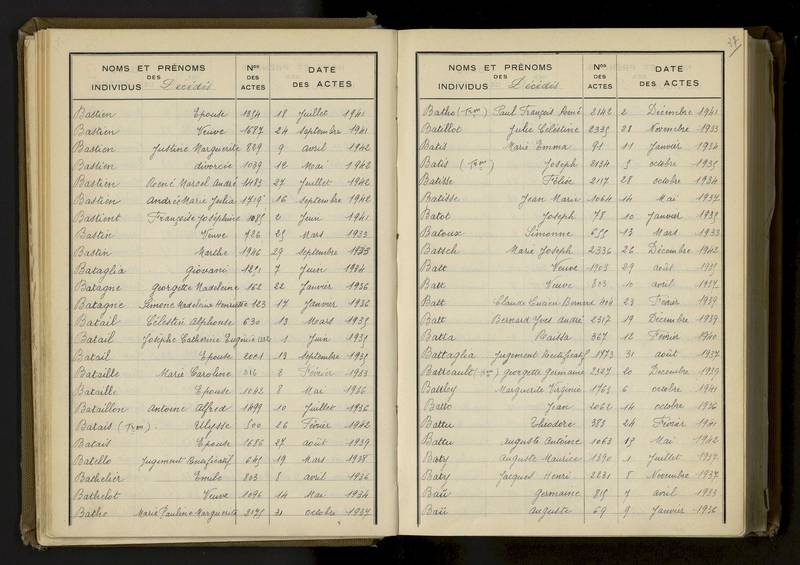 37
NOMS ET PRÉNOMS DES INDIVIDUS Décédés Nos DES ACTES DATE DES ACTES
Bastien Epouse 1854 18 Juillet 1941
Bastien Veuve 1687 24 Septembre 1941
Bastien Justine Marguerite 829 9 avril 1942
Bastien divorcée 1039 12 Mai 1942
Bastien René Marcel André 1483 27 Juillet 1942
Bastien Andrée Marie Julia 1719 16 Septembre 1942
Bastient Françoise Joséphine 1085 2 Juin 1941
Bastin Veuve 726 25 Mars 1933
Bastin Marthe 1946 29 Septembre 1933
Bataglia Giovani 1251 7 Juin 1934
Batagne Georgette Madeleine 162 22 Janvier 1936
Batagne Simone Madeleine Henriette 123 17 Janvier 1936
Batail Célestin Alphonse 630 13 Mars 1935
Batail Josephe Catherine Eugénie 1 Juin 1935
Batail Epouse 2001 13 Septembre 1935
Bataille Marie Caroline 316 8 Février 1933
Bataille Epouse 1042 8 Mai 1936
Bataillon Antoine Alfred 1499 10 Juillet 1936
Batais (Trm) Ulysse 500 26 Février 1942
Batais Epouse 1686 27 août 1939
Batello Jugement Rectificatif 645 19 Mars 1938
Bathelier Emile 803 8 avril 1936
Bathelot Veuve 1096 14 Mai 1934
Batho Marie Pauline Marguerite 2171 31 octobre 1937
NOMS ET PRÉNOMS DES INDIVIDUS Décédés Nos DES ACTES DATE DES ACTES
Batho (Trm) Paul François René 2142 2 Décembre 1941
Batillot Julie Célestine 2335 28 Novembre 1933
Batis Marie Emma 91 11 Janvier 1934
Batis (Trm) Joseph 2134 5 octobre 1935
Batisse Félise 2117 28 octobre 1934
Batisse Jean Marie 1064 14 Mai 1937
Batot Joseph 78 10 Janvier 1935
Batoux Simonne 655 13 Mars 1933
Batsch Marie Joseph 2336 26 Décembre 1942
Batt Veuve 1903 29 août 1935
Batt Veuve 803 10 avril 1937
Batt Claude Lucien Bernard 404 23 Février 1939
Batt Bernard Yves André 2317 19 Décembre 1939
Batta Raissa 367 12 Février 1940
Battaglia Jugement Rectificatif 1773 31 août 1937
Batteault (Trm) Georgette Germaine 2327 20 Décembre 1939
Battley Marguerite Virginie 1763 6 octobre 1941
Batto Jean 2062 14 octobre 1936
Battu Théodore 383 24 Février 1941
Battu Auguste Antoine 1063 15 Mai 1942
Baty Auguste Maurice 1390 1 Juillet 1937
Baty Jacques Henri 2231 8 Novembre 1937
Baü Germaine 815 7 avril 1933
Baü Auguste 69 9 Janvier 1936